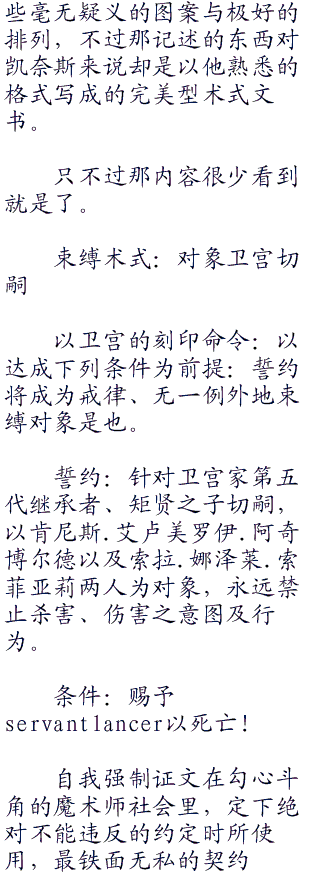 些毫无疑义的图案与极好的
排列，不过那记述的东西对
凯奈斯来说却是以他熟悉的
格式写成的完美型术式文
书。
只不过那内容很少看到
就是了。
束缚术式：对象卫宫切
嗣
以卫宫的刻印命令：以
达成下列条件为前提：誓约
将成为戒律、无一例外地束
缚对象是也。
誓约：针对卫宫家第五
代继承者、矩贤之子切嗣，
以肯尼斯.艾卢美罗伊.阿奇
博尔德以及索拉.娜泽莱.索
菲亚莉两人为对象，永远禁
止杀害、伤害之意图及行
为。
条件：赐予
servantlancer以死亡！
自我强制证文在勾心斗
角的魔术师社会里，定下绝
对不能违反的约定时所使
用，最铁面无私的契约